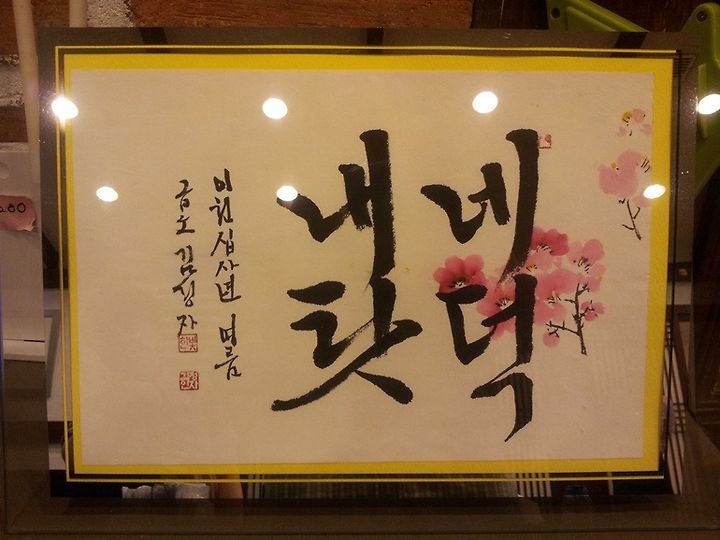 네 덕
내 탓
이천십사년 여름
금오 김성자